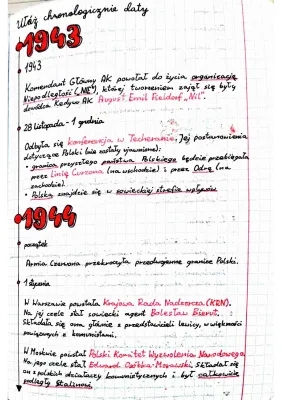 Ułóż chronologicznie daty
1943
• 1943
Komendant Główny AK powołał do życia organizację
Niepodległość („NIE"), której tworzeniem zajął się były
dowódca Kedywu AK August Emil Fieldorf „Nil".
• 28 listopada - 1 grudnia
Odbyła się konferencja w Teheranie. Jej postanowienia
dotyczące Polski (nie zostały ujawnione):
• granica przyszłego państwa Polskiego będzie przebiegała
przez linię Curzona (na wschodzie) i przez Odrę (na
zachodzie).
• Polska znajdzie się w sowieckiej strefie wpływów
1944
• początek
Armia Czerwona przekroczyła przedwojenne granice Polski.
• 1 stycznia
W Warszawie powstała Krajowa Rada Nadzorcza (KRN).
Na jej czele stał sowiecki agent Bolesław Bierut.
Składała się ona głównie z przedstawicieli lewicy, w większości
powiązanych z komunistami.
W Moskwie powstał Polski Komitet Wyzwolenia Narodowego.
Na jego czele stał Edward Osóbka-Morawski. Składał się
on z polskich działaczy komunistycznych i był całkowicie
podległy Stalinowi.